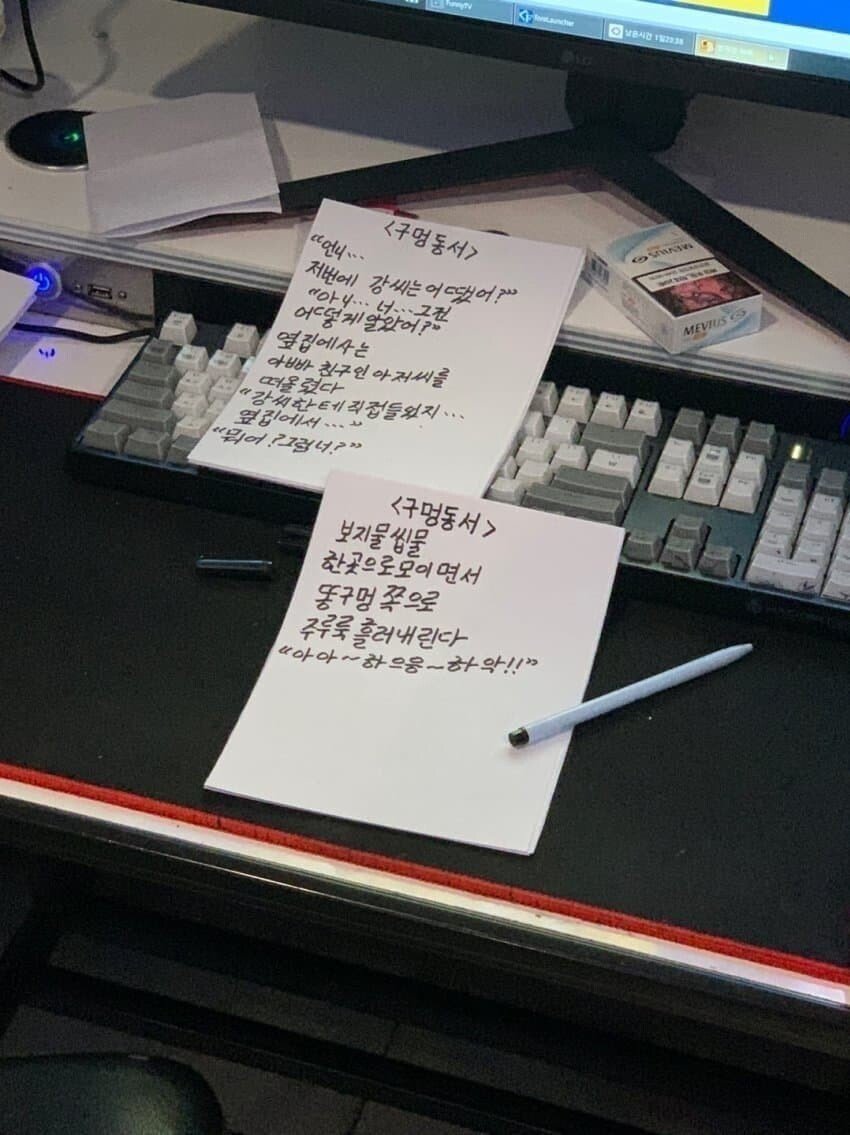 FunnyTV
남은시간 1일20:38
LG
<구멍동서>
"언니...
저번에 강씨는 어땠어?"
"아니... 너... 그건
어떻게 알았어?"
옆집에사는
아빠 친구인 아저씨를
떠올렸다
"강씨한테 직접들었지...
옆집에서..."
"뭐어? 그럼너?"
MEVIUS
MEVIUS
<구멍동서>
보지물씹물
한곳으로모이면서
똥구멍 쪽으로
주루룩 흘러내린다
"아아~하으응~하악!!"